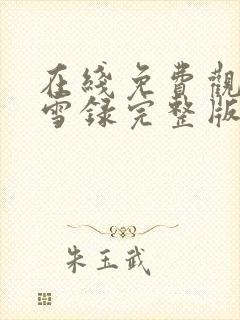 在綫免費觀
雪録完整版
朱玉武